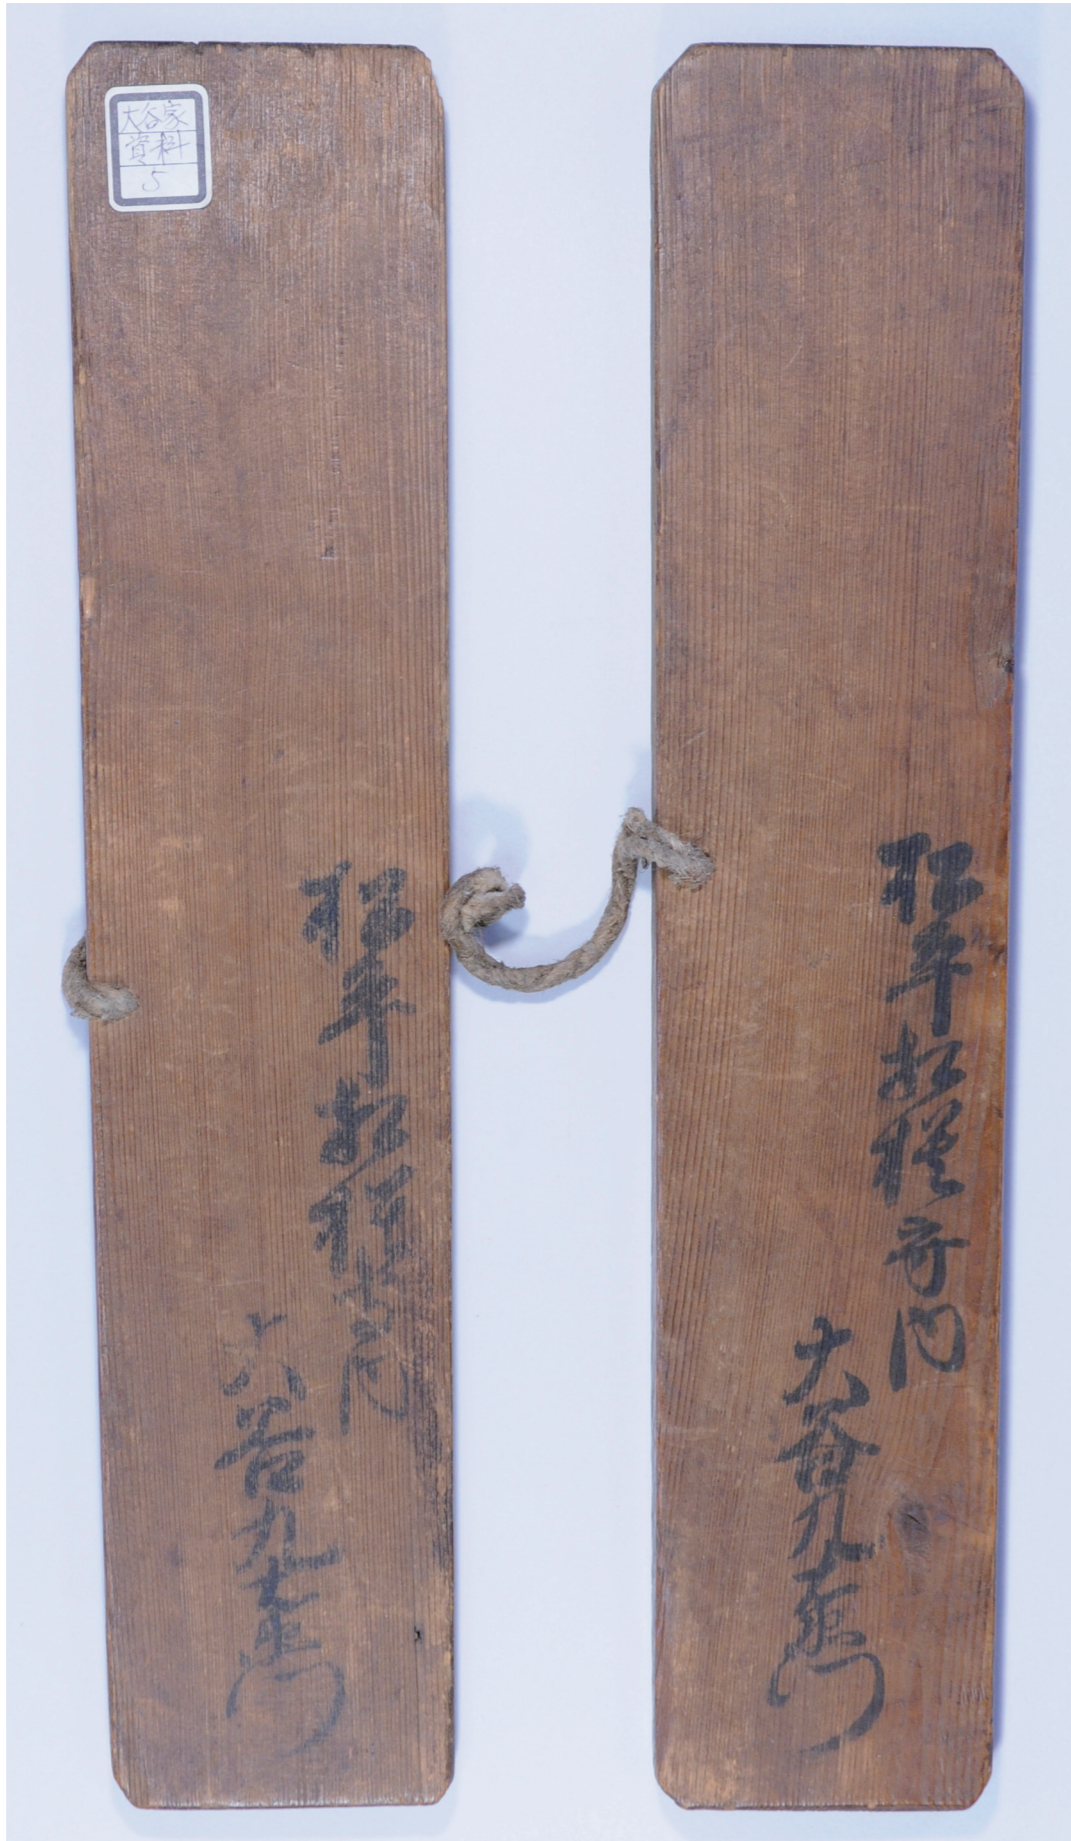 大谷家
資料
5
松平相模守内
大谷九右衛門
松平相模守内
大谷九右衛門